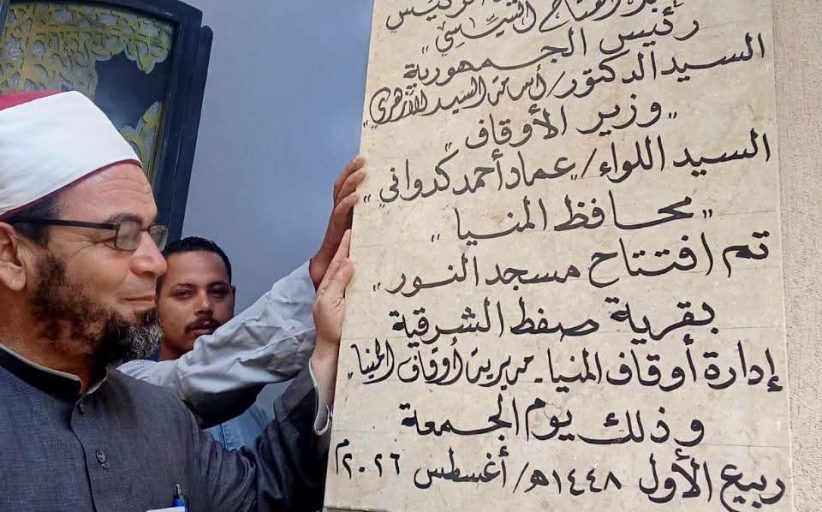 الفتاح السيسي
رئيس الجمهورية
السيد الدكتور/ أسامة السيد الأزهري
" وزير الأوقاف "
السيد اللواء/ عماد أحمد كدواني
" محافظ المنيا "
تم افتتاح مسجد النور
بقرية صفط الشرقية
إدارة أوقاف المنيا - مديرية أوقاف المنيا.
وذلك يوم الجمعة
ربيع الأول ١٤٤٨ھ/ أغسطس ٢٠٢٦م